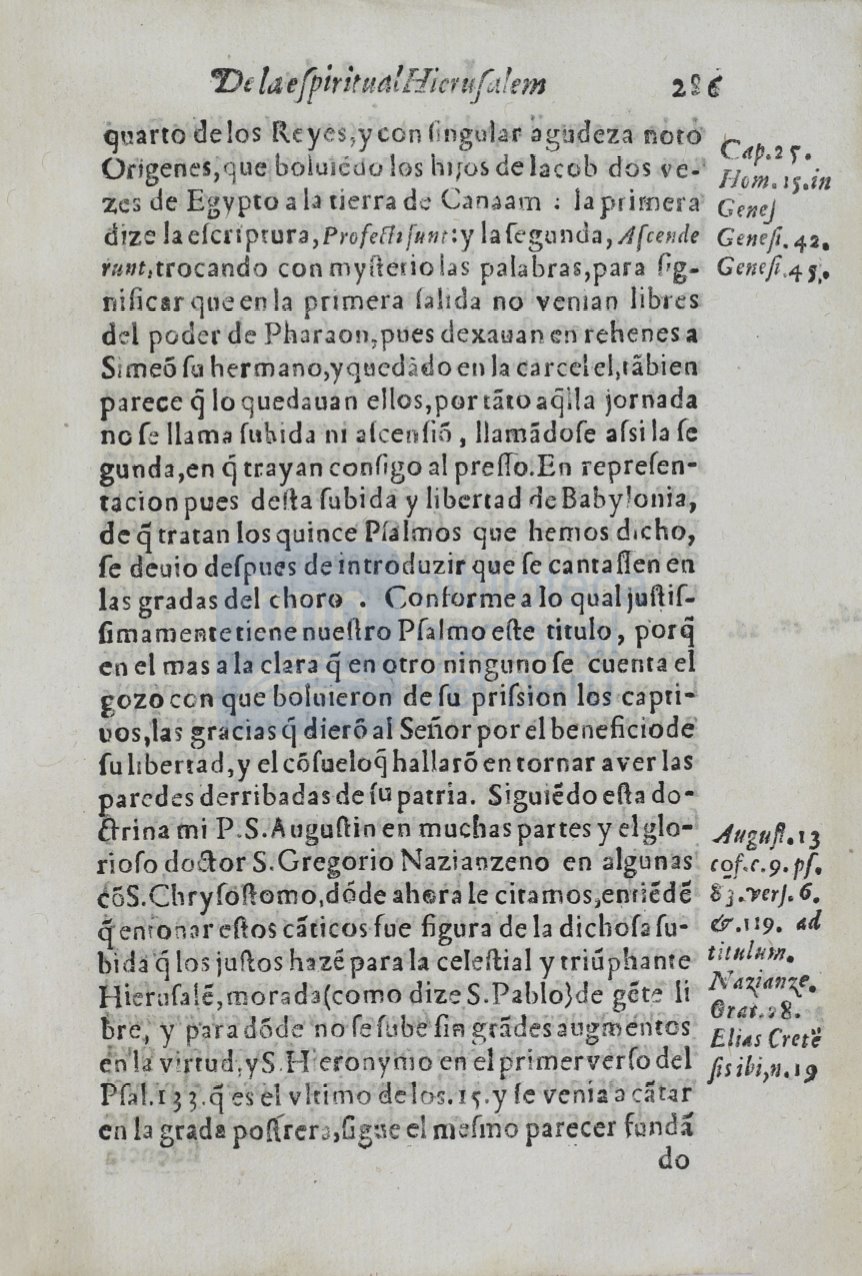 De la eſpiritual Hieruſalem 286
quarto de los Reyes, y con ſingular agudeza noto
Origenes, que boluiēdo los hijos de Iacob dos ve-
zes de Egypto a la tierra de Canaam : la primera
dize la eſcriptura, Profecti ſunt: y la ſegunda, Aſcende
runt, trocando con myſterio las palabras, para ſig-
nificar que en la primera ſalida no venian libres
del poder de Pharaon, pues dexauan en rehenes a
Simeō ſu hermano, y quedādo en la carcel el, tābien
parece q̄ lo quedauan ellos, por tāto aq̄lla jornada
no ſe llama ſubida ni aſcenſiō, llamādoſe aſsi la ſe
gunda, en q̄ trayan conſigo al preſſo. En repreſen-
tacion pues deſta ſubida y libertad de Babylonia,
de q̄ tratan los quince Pſalmos que hemos dicho,
ſe deuio deſpues de introduzir que ſe cantaſſen en
las gradas del choro . Conforme a lo qual juſtiſ-
ſimamente tiene nueſtro Pſalmo eſte titulo, porq̄
en el mas a la clara q̄ en otro ninguno ſe cuenta el
gozo con que boluieron de ſu priſsion los capti-
uos, las gracias q̄ dierō al Señor por el beneficio de
ſu libertad, y el cōſuelo q̄ hallarō en tornar a ver las
paredes derribadas de ſu patria. Siguiēdo eſta do-
ctrina mi P. S. Auguſtin en muchas partes y el glo-
rioſo doctor S. Gregorio Nazianzeno en algunas
cō S. Chryſoſtomo, dōde ahora le citamos, entiēdē
q̄ entonar eſtos cāticos fue figura de la dichoſa ſu-
bida q̄ los juſtos hazē para la celeſtial y triūphante
Hieruſalē, morada (como dize S. Pablo) de gēte li
bre, y para dōde no ſe ſube ſin grādes augmentos
en la virtud, y S. Hieronymo en el primer verſo del
Pſal. 133. q̄ es el vltimo de los. 15. y ſe venia a cātar
en la grada poſtrera, ſigue el meſmo parecer fundā
do
Cap. 25.
Hom. 15. in
Geneſ
Geneſi. 42.
Geneſi. 45.
Auguſt. 13
cōf. c. 9. pſ.
83. verſ. 6.
&. 119. ad
titulum.
Nazianze.
Orat. 28.
Elias Cretē
ſis ibi, n. 19